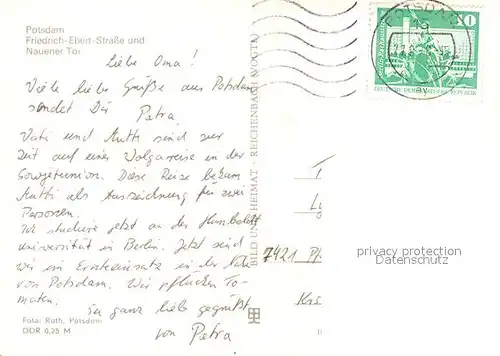 Potsdam
Friedrich-Ebert-Straße und
Nauener Tor
Liebe Oma!
Viele liebe Grüße aus Potsdam
sendet Dir
Petra.
Vati und Mutti sind zur
Zeit auf einer Wolgareise in der
Sowjetunion. Diese Reise bekam
Mutti als Auszeichnung für zwei
Personen.
Ich studiere jetzt an der Humboldt
universität in Berlin. Jetzt sind
wir im Ernteeinsatz in der Nähe
von Potsdam. Wir pflücken To-
maten.
Sei ganz lieb gegrüßt
von Petra
Foto: Roth, Potsdam
DDR 0,25 M
BILD UND HEIMAT · REICHENBACH (VOGTL)
POTSDAM
10
DEUTSCHE DEMOKRATISCHE REPUBLIK
7421
Krs
privacy protection
Datenschutz